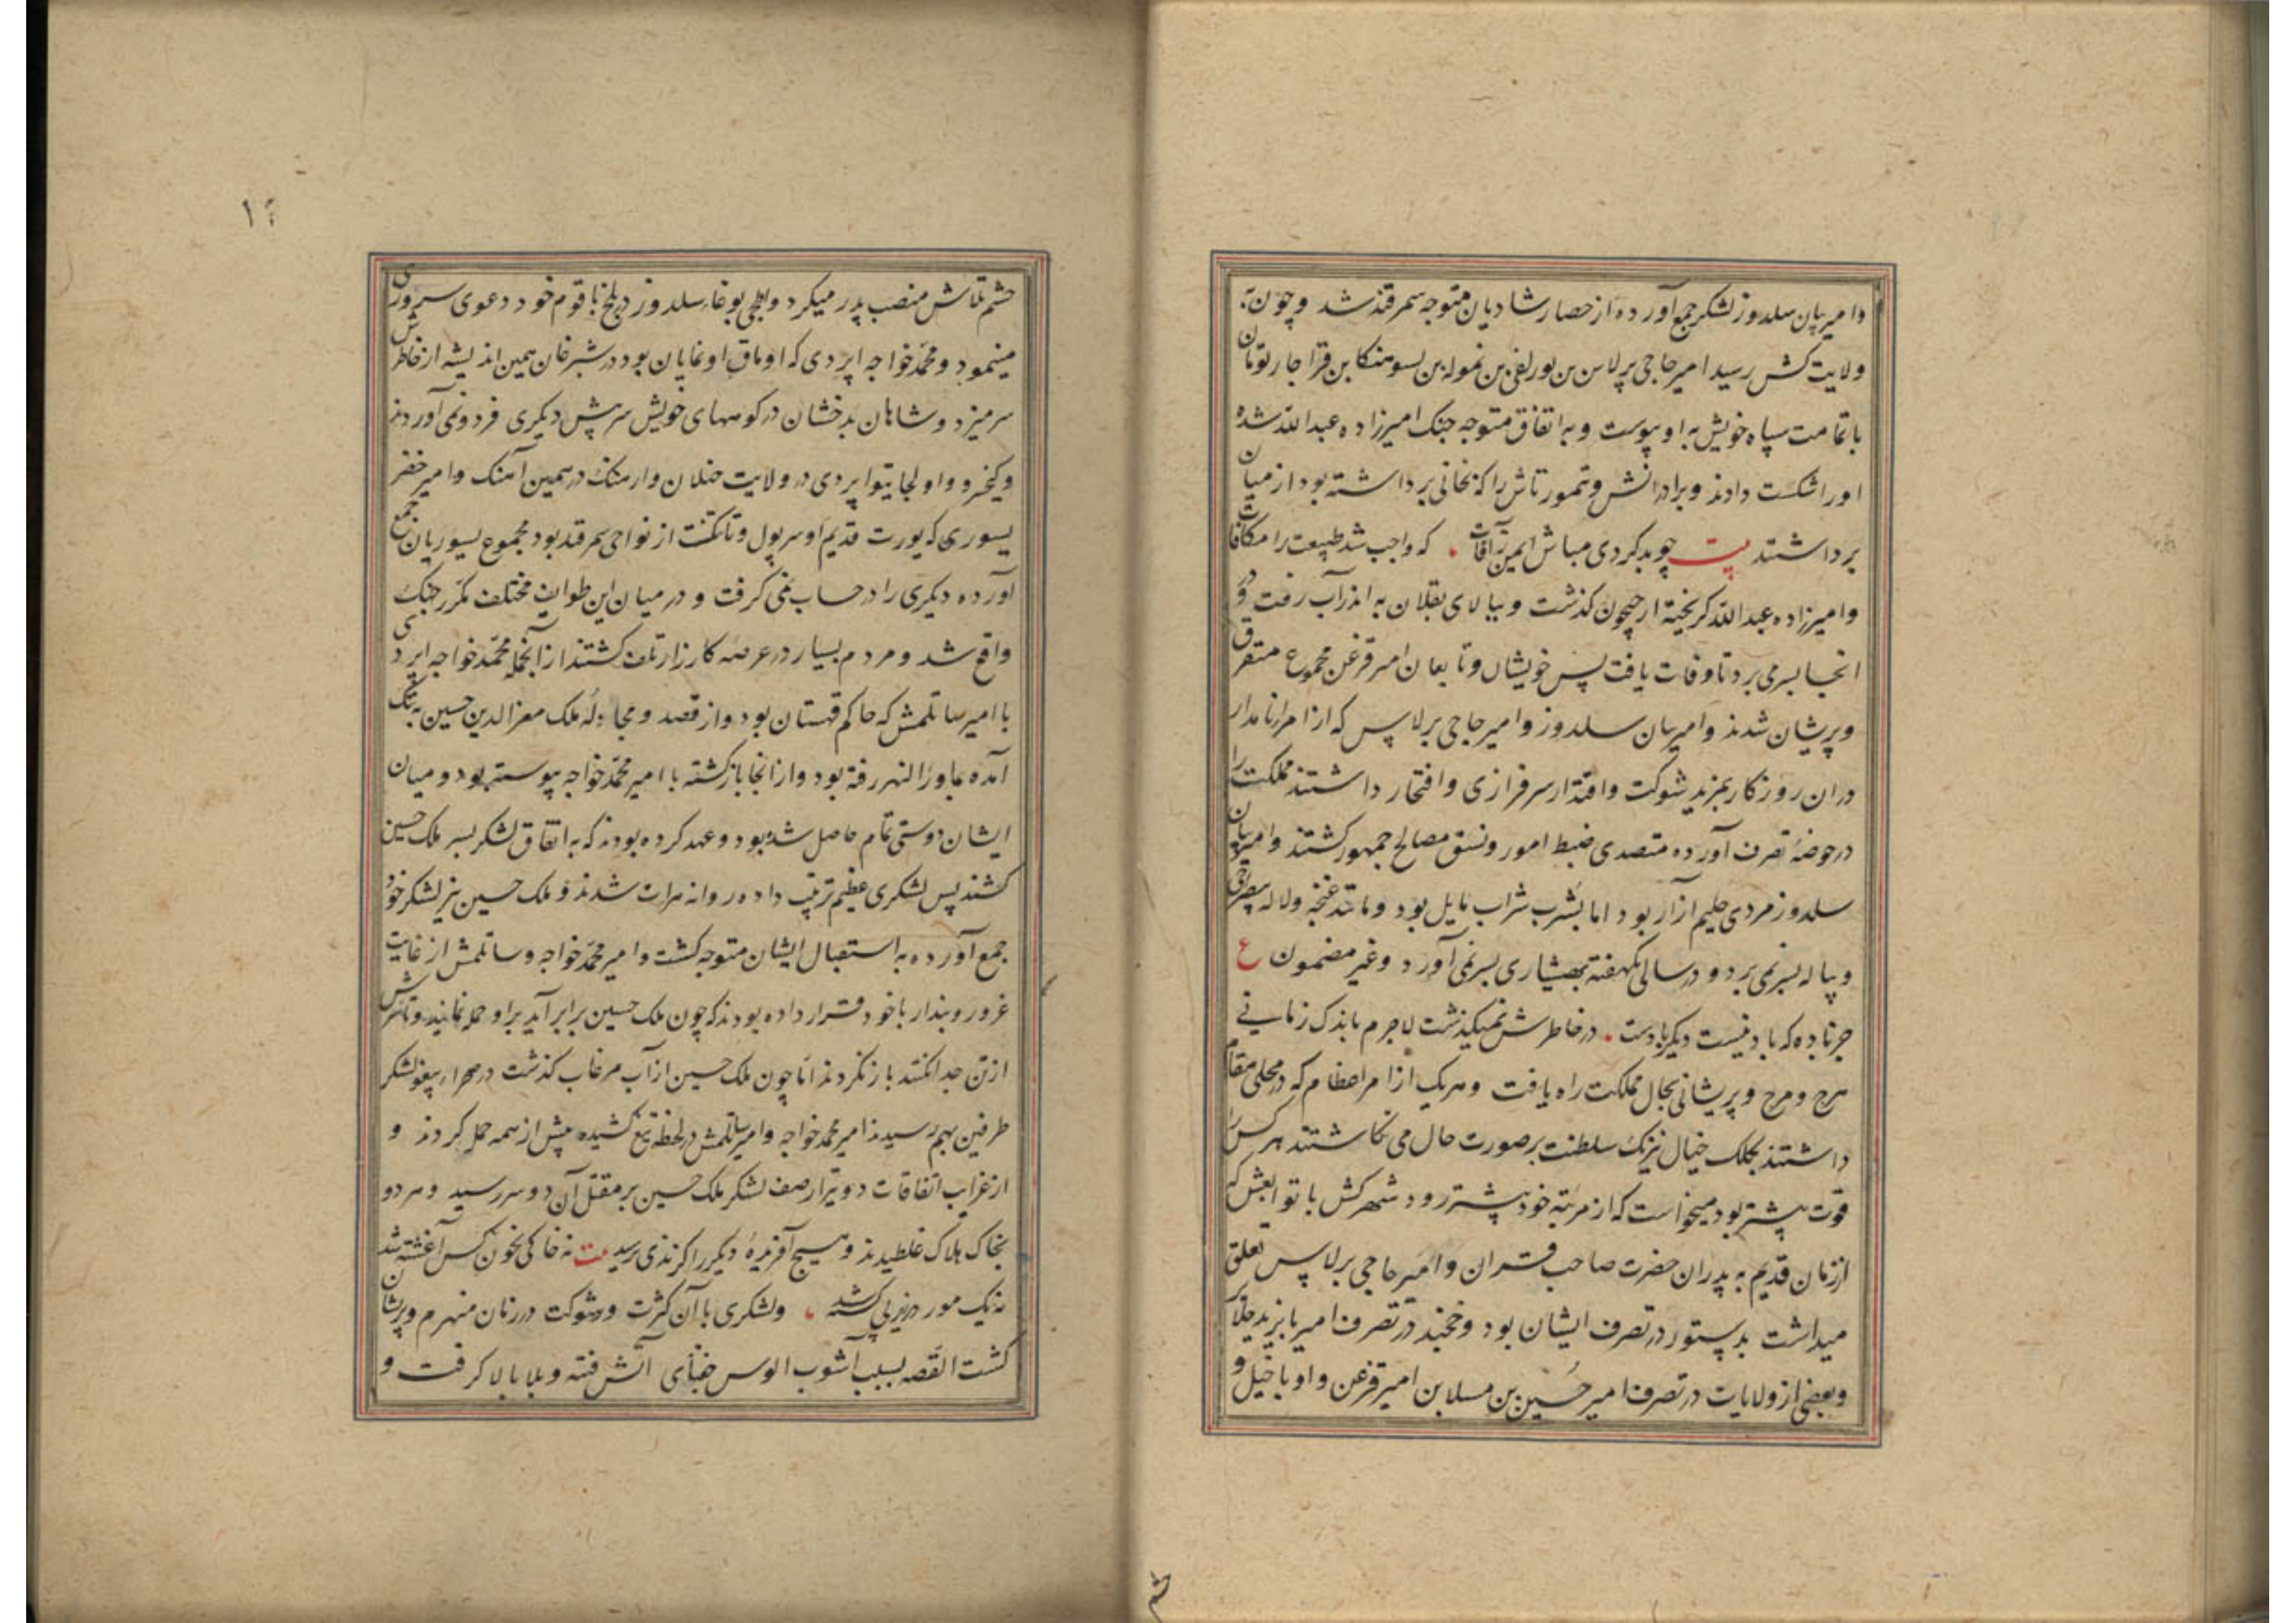 وامیربیان سلدوز لشکر جمع آورده از حصار شادیان متوجه سمرقند شد و چون به
ولایت کش رسید امیر حاجی برلاس بن بن نموله بن بن قراجار نویان
با تمامت سپاه خویش به او پیوست و به اتفاق متوجه جنک امیرزاده عبدالله شده
او را شکست دادند و برادرانش و تمور تاش را که بخانی برداشته بود از میان
برداشتند بیت چو بد کردی مباش ایمن ز آفات که واجب شد طبیعت را مکافات
وامیرزاده عبدالله کریخته از جیحون کذشت و ببالای بقلان به اندراب رفت و در
انجا بسر می برد تا وفات یافت پس خویشان و تابعان امیر قزغن مجموع متفرق
و پریشان شدند و امیربیان سلدوز و امیر حاجی برلاس که از امراء نامدار
دران روزکار بمزید شوکت و اقتدار سرفرازی و افتخار داشتند مملکت را
در حوضهٔ تصرف آورده متصدی ضبط امور و نسق مصالح جمهور کشتند و امیربیان
سلدوز مردی حلیم ازار بود اما بشرب شراب مایل بود و مانند غنچه و لاله بی صراحی
و پیاله بسر نمی برد و در سالی یکهفته بهشیاری بسر نمی آورد و غیر مضمون ع
جز باده که باد نیست دیکر بادست در خاطرش نمیکذشت لاجرم باندک زمانی
هرج و مرج و پریشانی بحال مملکت راه یافت و هریک از امراء عظام که در محلی مقام
داشتند بکلک خیال نیرنک سلطنت بر صورت حال می نکاشتند هرکس را
قوت بیشتر بود میخواست که از مرتبه خود پیشتر رود شهر کش با توابعش که
از زمان قدیم به پدران حضرت صاحب قران و امیر حاجی برلاس تعلق
میداشت بدستور در تصرف ایشان بود و خجند در تصرف امیر بایزید جلایر
و بعضی از ولایات در تصرف امیر حسین بن مسلا بن امیر قزغن و او با خیل و
حشم تلاش منصب پدر میکرد و بوغاء سلدوز در بلخ با قوم خود دعوی سروری
مینمود و محمد خواجه اپردی که اوماق او نمایان بود در شبرغان همین اندیشه از خاطرش
سر میزد و شاهان بدخشان در کوههای خویش سر پیش دیکری فرو نمی آوردند
و کیخسرو و اولجایتو اپردی در ولایت ختلان و ارهنک در همین آهنک و امیر خضر
یسوری که یورت قدیم او سرپول و تاتکنت از نواحی سمرقند بود مجموع یسوریان جمع
آورده دیکری را در حساب نمی کرفت و در میان این طوایف مختلف مکرر جنک
واقع شد و مردم بسیار در عرصه کارزار تلف کشتند از آنجمله محمد خواجه اپردی
با امیر ساتلمش که حاکم قهستان بود و از قصد و مجادله ملک معزالدین حسین به تنک
آمده بماورالنهر رفته بود و از انجا باز کشته با امیر محمد خواجه پیوسته بود و میان
ایشان دوستی تمام حاصل شده بود و عهد کرده بودند که به اتفاق لشکر بسر ملک حسین
کشند پس لشکری عظیم ترتیب داده روانه هرات شدند و ملک حسین نیز لشکر خود
جمع آورده به استقبال ایشان متوجه کشت و امیر محمد خواجه و ساتلمش از غایت
غرور و پندار با خود قرار داده بودند که چون ملک حسین برابر آید بر او حمله نمایند و تا سرش
از تن جدا نکنند باز نکردند اما چون ملک حسین از آب مرغاب کذشت در صحراء لشکر
طرفین بهم رسیدند امیر محمد خواجه و امیر ساتلمش در لحظه تیغ کشیده پیش از همه حمله کردند و
از غرایب اتفاقات دو تیر از صف لشکر ملک حسین بر مقتل آن دو سرور رسید و هر دو
بخاک هلاک غلطیدند و هیچ آفریدهٔ دیکر را کزندی نرسید بیت نه خاکی بخون کس آغشته شد
نه یک مور در زیر پی کشته شد و لشکری با آن کثرت و شوکت در زمان منهزم و پریشان
کشت القصه بسبب آشوب الوس جغتای آتش فتنه و بلا بالا کرفت و
حشم